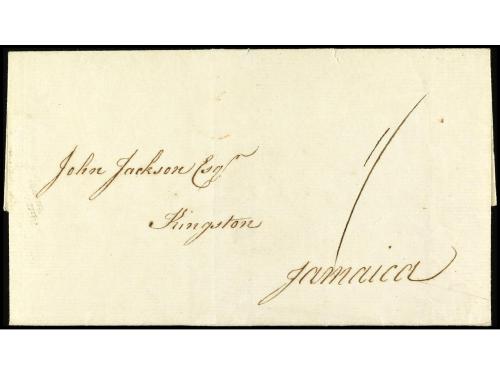 John Jackson Esqr
Kingston
Jamaica